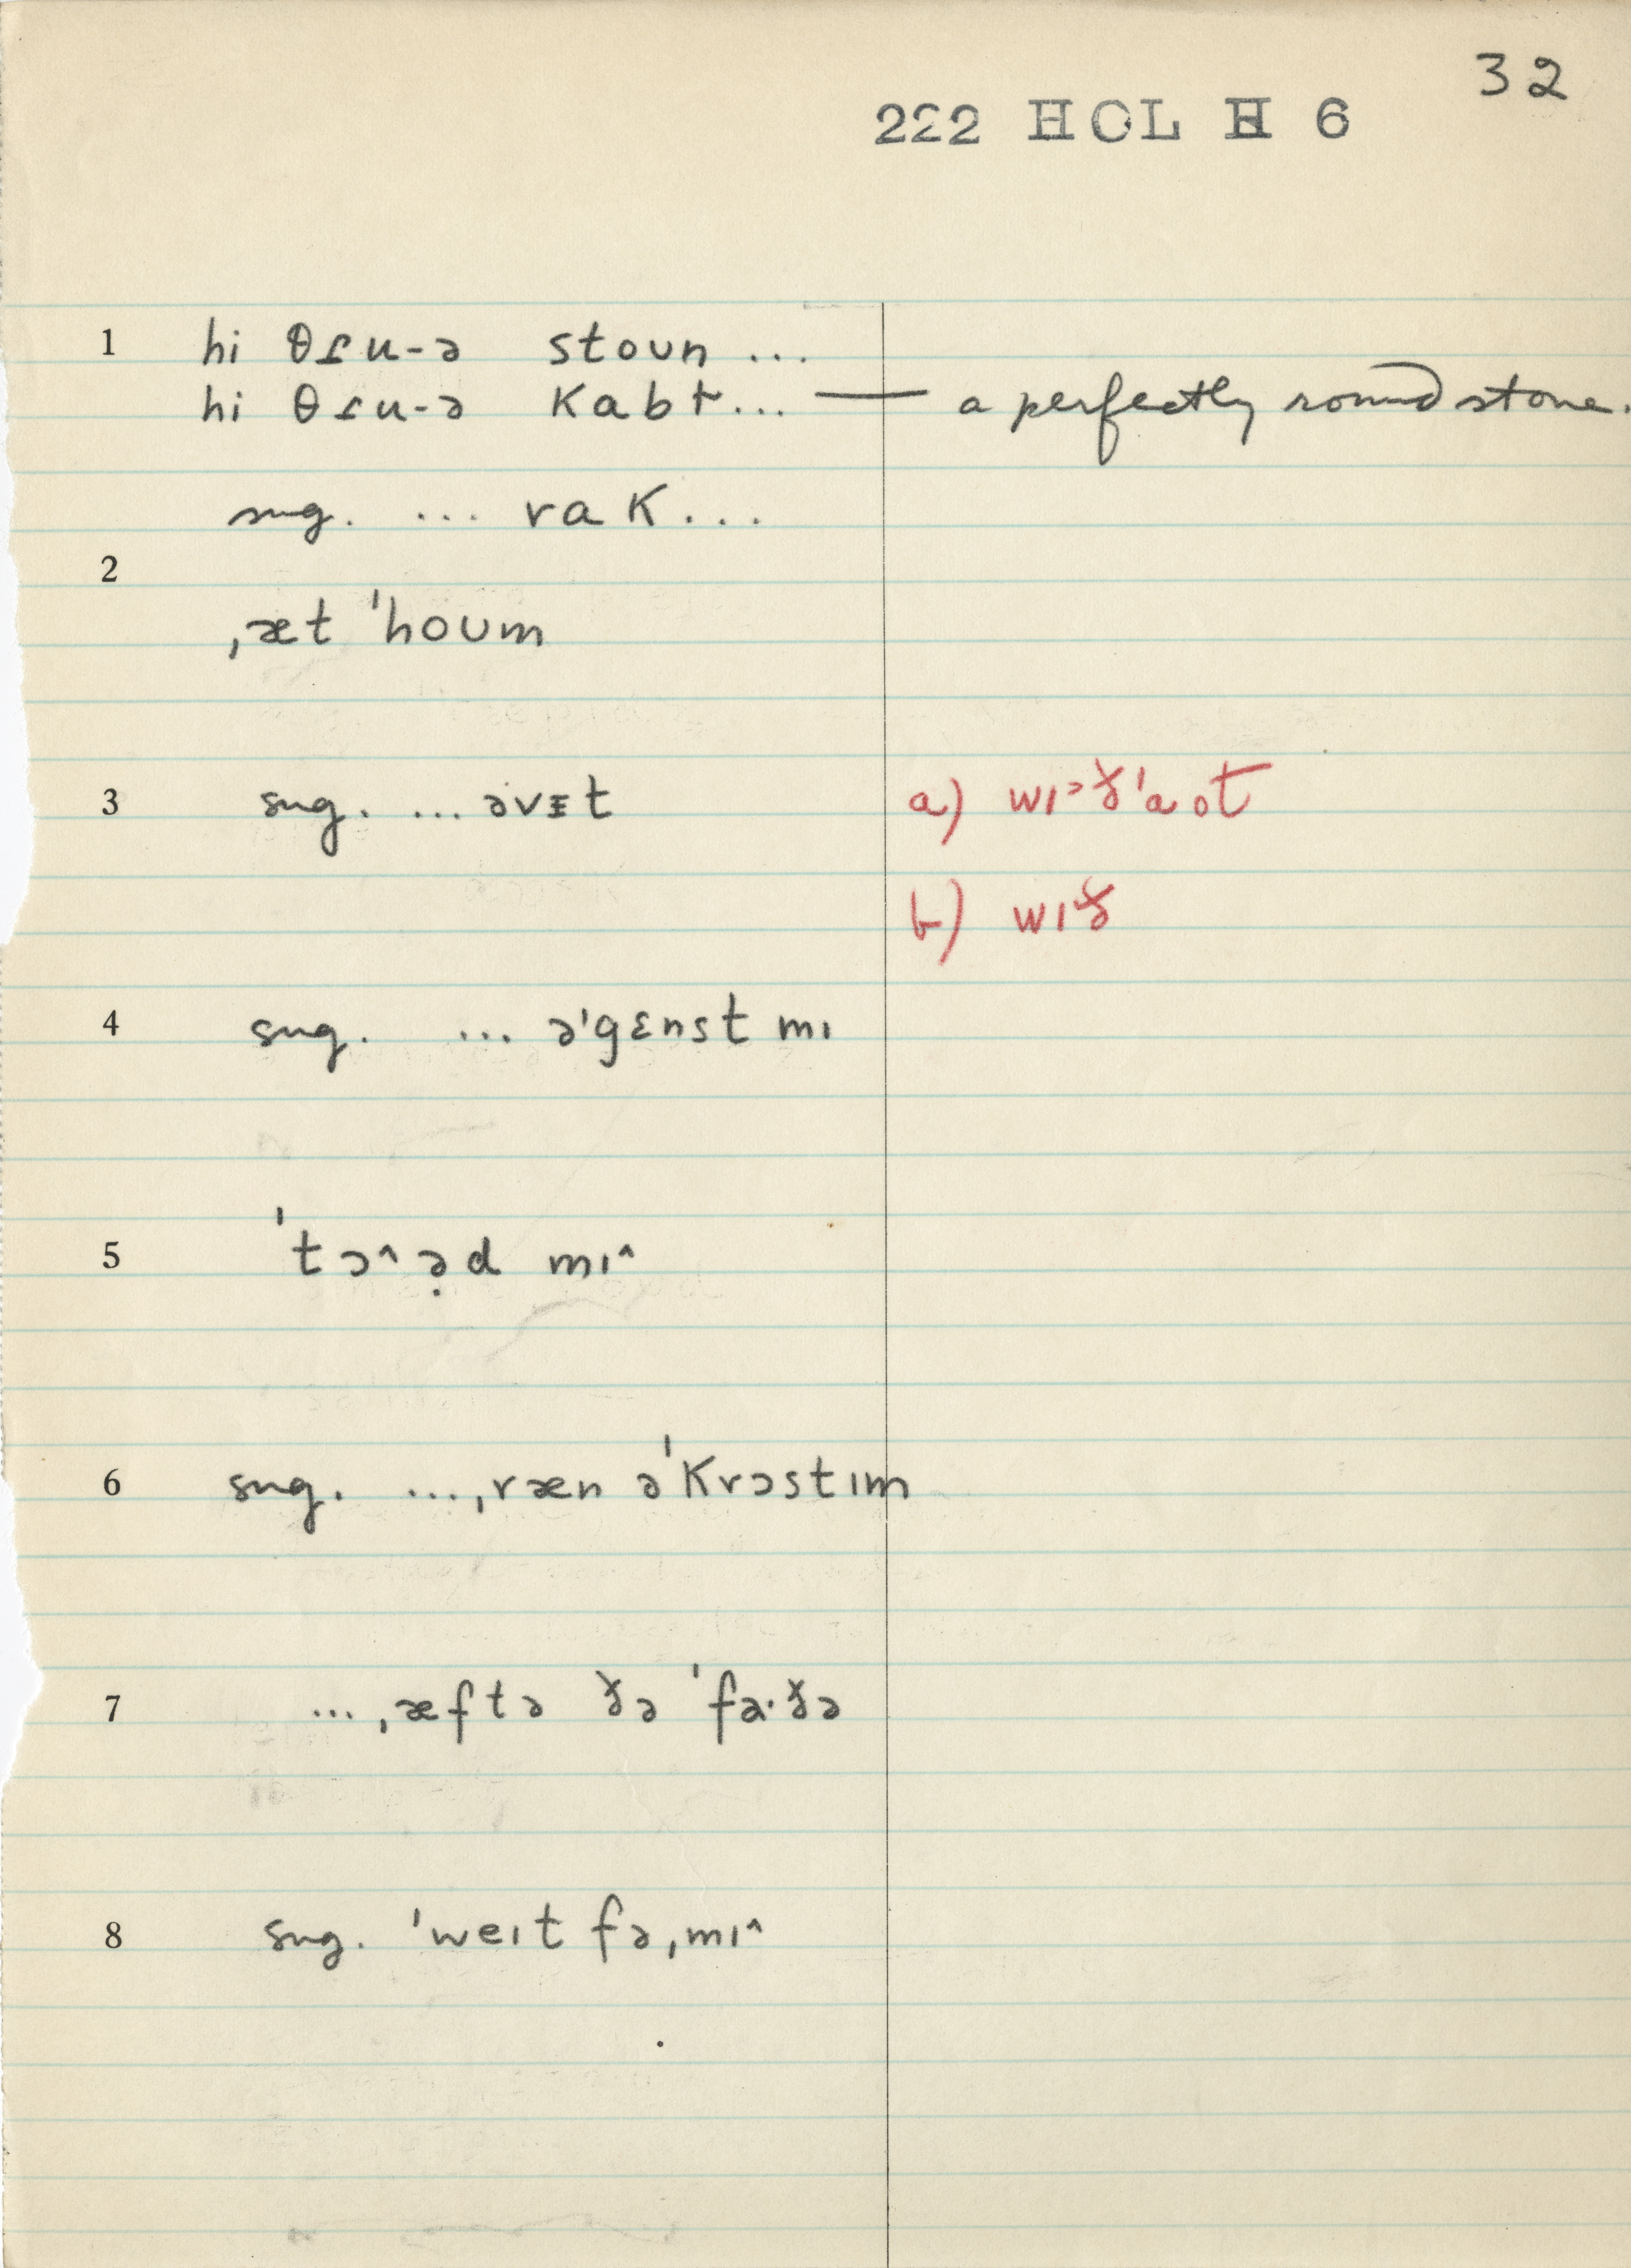 32
222 HOL H 6
1 hi θɾu-ə stoun ...
hi θɾu-ə kabɫ... — a perfectly round stone.
sug. ... rak...
2
ˌæt ˈhoum
3 sug. ... əvɪt a) wɪ˃ðˈaot
b) wɪð
4 sug. ... əˈgɛnst mɪ
5 ˈtɔ^ə̣d mɪ^
6 sug. ...ˌræn əˈkrɔstɪm
7 ...ˌæftə ðə ˈfa·ðə
8 sug. ˈweɪt fəˌmɪ^